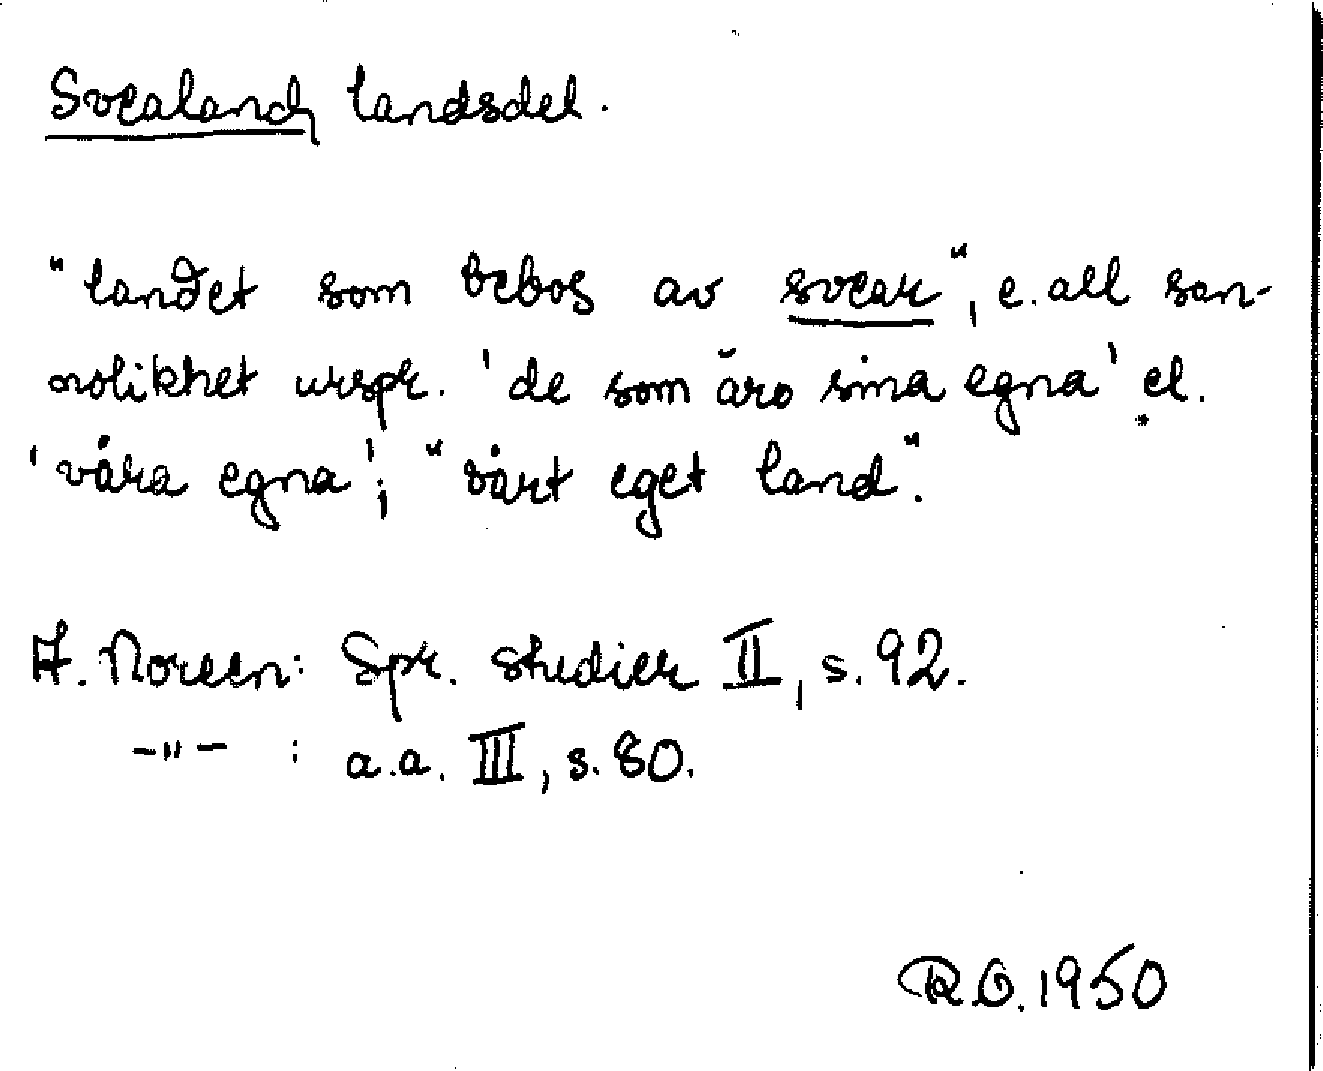 Svealand, landsdel.
"landet som bebos av svear", e. all san-
nolikhet urspr. 'de som äro sina egna' el.
'våra egna'; "vårt eget land".
A. Noreen: Spr. studier II, s. 92.
-"- : a.a. III, s. 80.
R.O. 1950